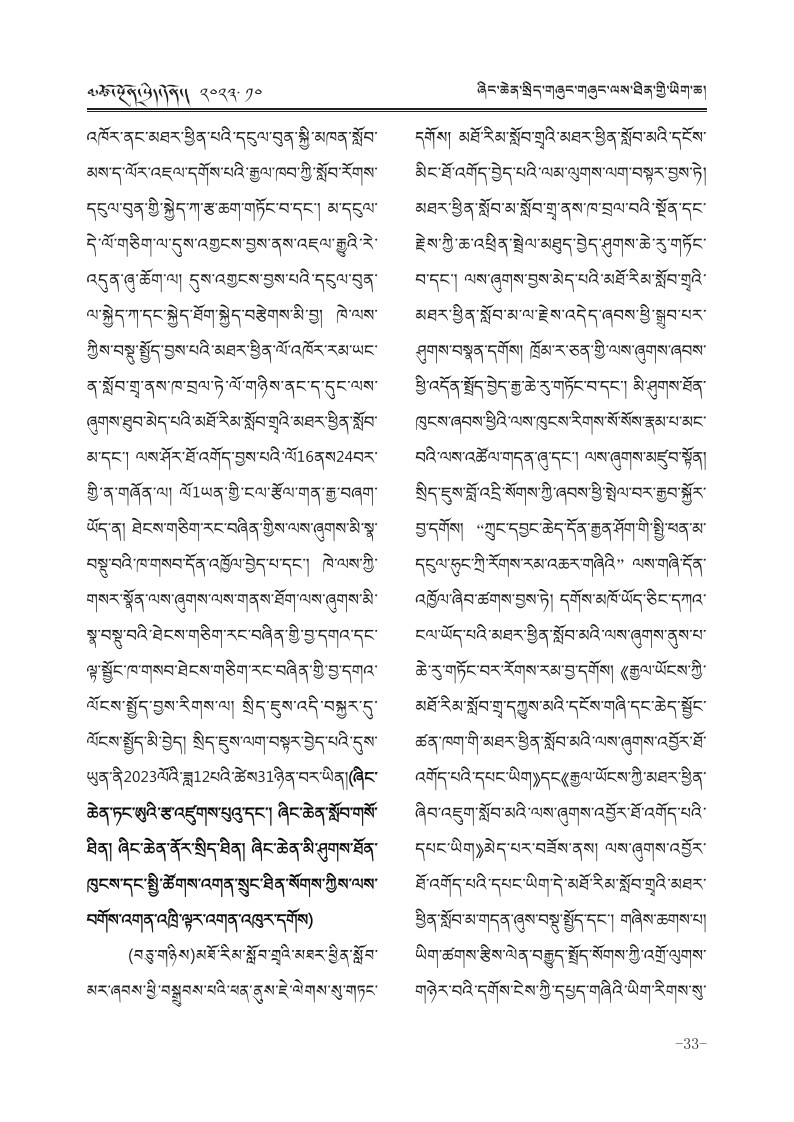 མཚོ་སྔོན་སྲིད་གཞུང་། ༢༠༢༣.༡༠
ཞིང་ཆེན་སྲིད་གཞུང་གཞུང་ལས་ཐིན་གྱི་ཡིག་ཆ།
འཁོར་ནང་མཐར་ཕྱིན་པའི་དངུལ་བུན་སྐྱི་མཁན་སློབ་
མས་ད་ལོར་འཇལ་དགོས་པའི་རྒྱལ་ཁབ་ཀྱི་སློབ་རོགས་
དངུལ་བུན་གྱི་སྐྱེད་ཀ་རྩ་ཆག་གཏོང་བ་དང་། མ་དངུལ་
དེ་ལོ་གཅིག་ལ་དུས་འགྱངས་བྱས་ནས་འཇལ་རྒྱུའི་རེ་
འདུན་ཞུ་ཆོག་ལ། དུས་འགྱངས་བྱས་པའི་དངུལ་བུན་
ལ་སྐྱེད་ཀ་དང་སྐྱེད་ཐོག་སྐྱེད་བརྩེགས་མི་བྱ། ཁེ་ལས་
ཀྱིས་བསྡུ་སྤྱོད་བྱས་པའི་མཐར་ཕྱིན་ལོ་འཁོར་རམ་ཡང་
ན་སློབ་གྲྭ་ནས་ཁ་བྲལ་ཏེ་ལོ་གཉིས་ནང་ད་དུང་ལས་
ཞུགས་ཐུབ་མེད་པའི་མཐོ་རིམ་སློབ་གྲྭའི་མཐར་ཕྱིན་སློབ་
མ་དང་། ལས་ཤོར་ཐོ་འགོད་བྱས་པའི་ལོ16ནས24བར་
གྱི་ན་གཞོན་ལ། ལོ1ཡན་གྱི་ངལ་རྩོལ་གན་རྒྱ་བཞག་
ཡོད་ན། ཐེངས་གཅིག་རང་བཞིན་གྱིས་ལས་ཞུགས་མི་སྣ་
བསྡུ་བའི་ཁ་གསབ་དོན་འཁྱོལ་བྱེད་པ་དང་། ཁེ་ལས་ཀྱི་
གསར་སྣོན་ལས་ཞུགས་ལས་གནས་ཐོག་ལས་ཞུགས་མི་
སྣ་བསྡུ་བའི་ཐེངས་གཅིག་རང་བཞིན་གྱི་བྱ་དགའ་དང་
ལྟ་སྦྱོང་ཁ་གསབ་ཐེངས་གཅིག་རང་བཞིན་གྱི་བྱ་དགའ་
ལོངས་སྤྱོད་བྱས་རིགས་ལ། སྲིད་ཇུས་འདི་བསྐྱར་དུ་
ལོངས་སྤྱོད་མི་བྱེད། སྲིད་ཇུས་ལག་བསྟར་བྱེད་པའི་དུས་
ཡུན་ནི2023ལོའི་ཟླ12པའི་ཚེས31ཉིན་བར་ཡིན།(ཞིང་
ཆེན་ཏང་ཨུའི་རྩ་འཛུགས་པུའུ་དང་། ཞིང་ཆེན་སློབ་གསོ་
ཐིན། ཞིང་ཆེན་ནོར་སྲིད་ཐིན། ཞིང་ཆེན་མི་ཤུགས་ཐོན་
ཁུངས་དང་སྤྱི་ཚོགས་འགན་སྲུང་ཐིན་སོགས་ཀྱིས་ལས་
བགོས་འགན་འཁྲི་ལྟར་འགན་འཁུར་དགོས)
(བཅུ་གཉིས)མཐོ་རིམ་སློབ་གྲྭའི་མཐར་ཕྱིན་སློབ་
མར་ཞབས་ཕྱི་བསྒྲུབས་པའི་ཕན་ནུས་ཇེ་ལེགས་སུ་གཏང་
དགོས། མཐོ་རིམ་སློབ་གྲྭའི་མཐར་ཕྱིན་སློབ་མའི་དངོས་
མིང་ཐོ་འགོད་བྱེད་པའི་ལམ་ལུགས་ལག་བསྟར་བྱས་ཏེ།
མཐར་ཕྱིན་སློབ་མ་སློབ་གྲྭ་ནས་ཁ་བྲལ་བའི་སྔོན་དང་
རྗེས་ཀྱི་ཆ་འཕྲིན་སྦྲེལ་མཐུད་བྱེད་ཤུགས་ཆེ་རུ་གཏོང་
བ་དང་། ལས་ཞུགས་བྱས་མེད་པའི་མཐོ་རིམ་སློབ་གྲྭའི་
མཐར་ཕྱིན་སློབ་མ་ལ་རྗེས་འདེད་ཞབས་ཕྱི་སྒྲུབ་པར་
ཤུགས་བསྣན་དགོས། ཁྲོམ་ར་ཅན་གྱི་ལས་ཞུགས་ཞབས་
ཕྱི་འདོན་སྤྲོད་བྱེད་རྒྱ་ཆེ་རུ་གཏོང་བ་དང་། མི་ཤུགས་ཐོན་
ཁུངས་ཞབས་ཕྱིའི་ལས་ཁུངས་རིགས་སོ་སོས་རྣམ་པ་མང་
བའི་ལས་འཚོལ་གདན་ཞུ་དང་། ལས་ཞུགས་མཛུབ་སྟོན།
སྲིད་ཇུས་བློ་འདྲི་སོགས་ཀྱི་ཞབས་ཕྱི་སྤེལ་བར་རྒྱབ་སྐྱོར་
བྱ་དགོས། “ཀྲུང་དབྱང་ཆེད་དོན་རྒྱན་ཤོག་གི་སྤྱི་ཕན་མ་
དངུལ་ཧྲུང་ཀྲི་རོགས་རམ་འཆར་གཞིའི” ལས་གཞི་དོན་
འཁྱོལ་ཞིབ་ཚགས་བྱས་ཏེ། དགོས་མཁོ་ཡོད་ཅིང་དཀའ་
ངལ་ཡོད་པའི་མཐར་ཕྱིན་སློབ་མའི་ལས་ཞུགས་ནུས་པ་
ཆེ་རུ་གཏོང་བར་རོགས་རམ་བྱ་དགོས། 《རྒྱལ་ཡོངས་ཀྱི་
མཐོ་རིམ་སློབ་གྲྭ་དཀྱུས་མའི་དངོས་གཞི་དང་ཆེད་སྦྱོང་
ཚན་ཁག་གི་མཐར་ཕྱིན་སློབ་མའི་ལས་ཞུགས་འབྱོར་ཐོ་
འགོད་པའི་དཔང་ཡིག》དང《རྒྱལ་ཡོངས་ཀྱི་མཐར་ཕྱིན་
ཞིབ་འཇུག་སློབ་མའི་ལས་ཞུགས་འབྱོར་ཐོ་འགོད་པའི་
དཔང་ཡིག》མེད་པར་བཟོས་ནས། ལས་ཞུགས་འབྱོར་
ཐོ་འགོད་པའི་དཔང་ཡིག་དེ་མཐོ་རིམ་སློབ་གྲྭའི་མཐར་
ཕྱིན་སློབ་མ་གདན་ཞུས་བསྡུ་སྤྱོད་དང་། གཞིས་ཆགས་པ།
ཡིག་ཚགས་རྩིས་ལེན་བརྒྱུད་སྤྲོད་སོགས་ཀྱི་འགྲོ་ལུགས་
གཉེར་བའི་དགོས་ངེས་ཀྱི་དཔྱད་གཞིའི་ཡིག་རིགས་སུ་
-33-